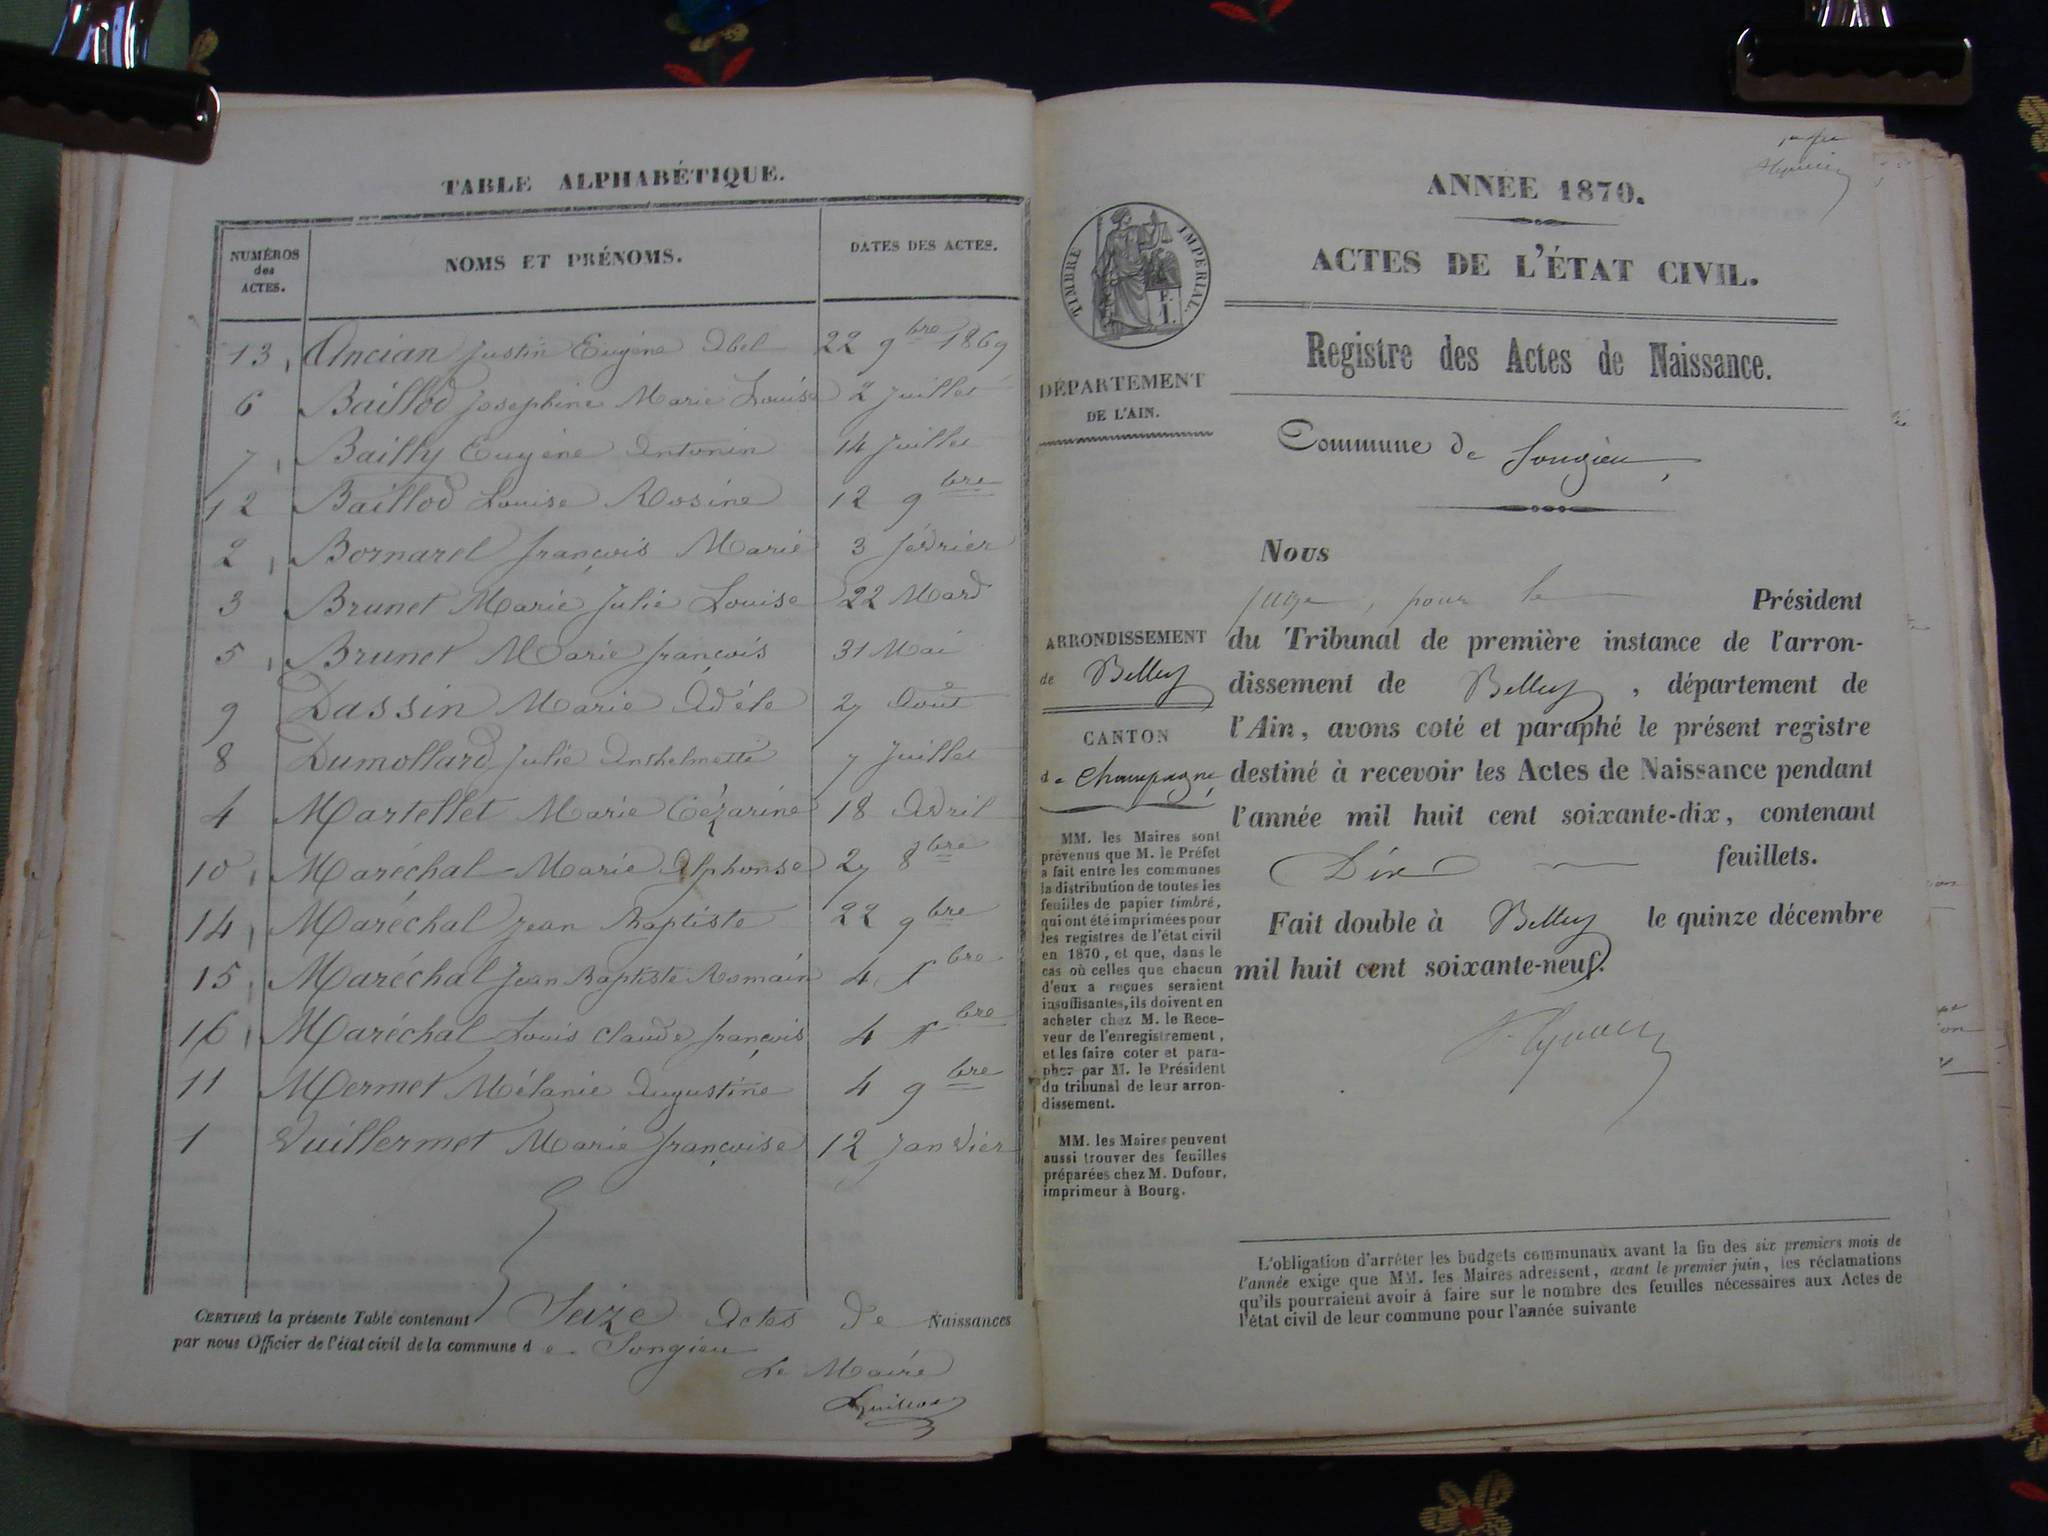 TABLE ALPHABÉTIQUE.
NUMÉROS des ACTES. NOMS ET PRÉNOMS. DATES DES ACTES.
13 Ancian Justin Eugène Abel 22 9bre 1869
6 Baillod Joséphine Marie Louise 2 Juillet
7 Bailly Eugène Antonin 14 Juillet
12 Baillod Louise Rosine 12 9bre
2 Bornarel françois Marie 3 février
3 Brunet Marie Julie Louise 22 Mars
5 Brunet Marie françois 31 Mai
9 Dassin Marie Adèle 27 Août
8 Dumollard Julie Anthelmette 7 Juillet
4 Martellet Marie Cézarine 18 Avril
10 Maréchal Marie Alphonse 27 8bre
14 Maréchal Jean Baptiste 22 9bre
15 Maréchal Jean Baptiste Romain 4 Xbre
16 Maréchal Louis Claude françois 4 Xbre
11 Mermet Mélanie Augustine 4 9bre
1 Vuillermet Marie françoise 12 Janvier
CERTIFIÉ la présente Table contenant Seize Actes de Naissances
par nous Officier de l'état civil de la commune de Songieu
Le Maire
ANNÉE 1870.
ACTES DE L'ÉTAT CIVIL.
TIMBRE IMPERIAL.
Registre des Actes de Naissance.
DÉPARTEMENT
DE L'AIN.
Commune de Songieu
Nous
juge, pour le Président
du Tribunal de première instance de l'arron-
dissement de Belley, département de
l'Ain, avons coté et paraphé le présent registre
destiné à recevoir les Actes de Naissance pendant
l'année mil huit cent soixante-dix, contenant
Dix feuillets.
Fait double à Belley le quinze décembre
mil huit cent soixante-neuf.
ARRONDISSEMENT
de Belley
CANTON
de Champagne
MM. les Maires sont
prévenus que M. le Préfet
a fait entre les communes
la distribution de toutes les
feuilles de papier timbré,
qui ont été imprimées pour
les registres de l'état civil
en 1870, et que, dans le
cas où celles que chacun
d'eux a reçues seraient
insuffisantes, ils doivent en
acheter chez M. le Rece-
veur de l'enregistrement,
et les faire coter et para-
pher par M. le Président
du tribunal de leur arron-
dissement.
MM. les Maires peuvent
aussi trouver des feuilles
préparées chez M. Dufour,
imprimeur à Bourg.
L'obligation d'arrêter les budgets communaux avant la fin des six premiers mois de
l'année exige que MM. les Maires adressent, avant le premier juin, les réclamations
qu'ils pourraient avoir à faire sur le nombre des feuilles nécessaires aux Actes de
l'état civil de leur commune pour l'année suivante